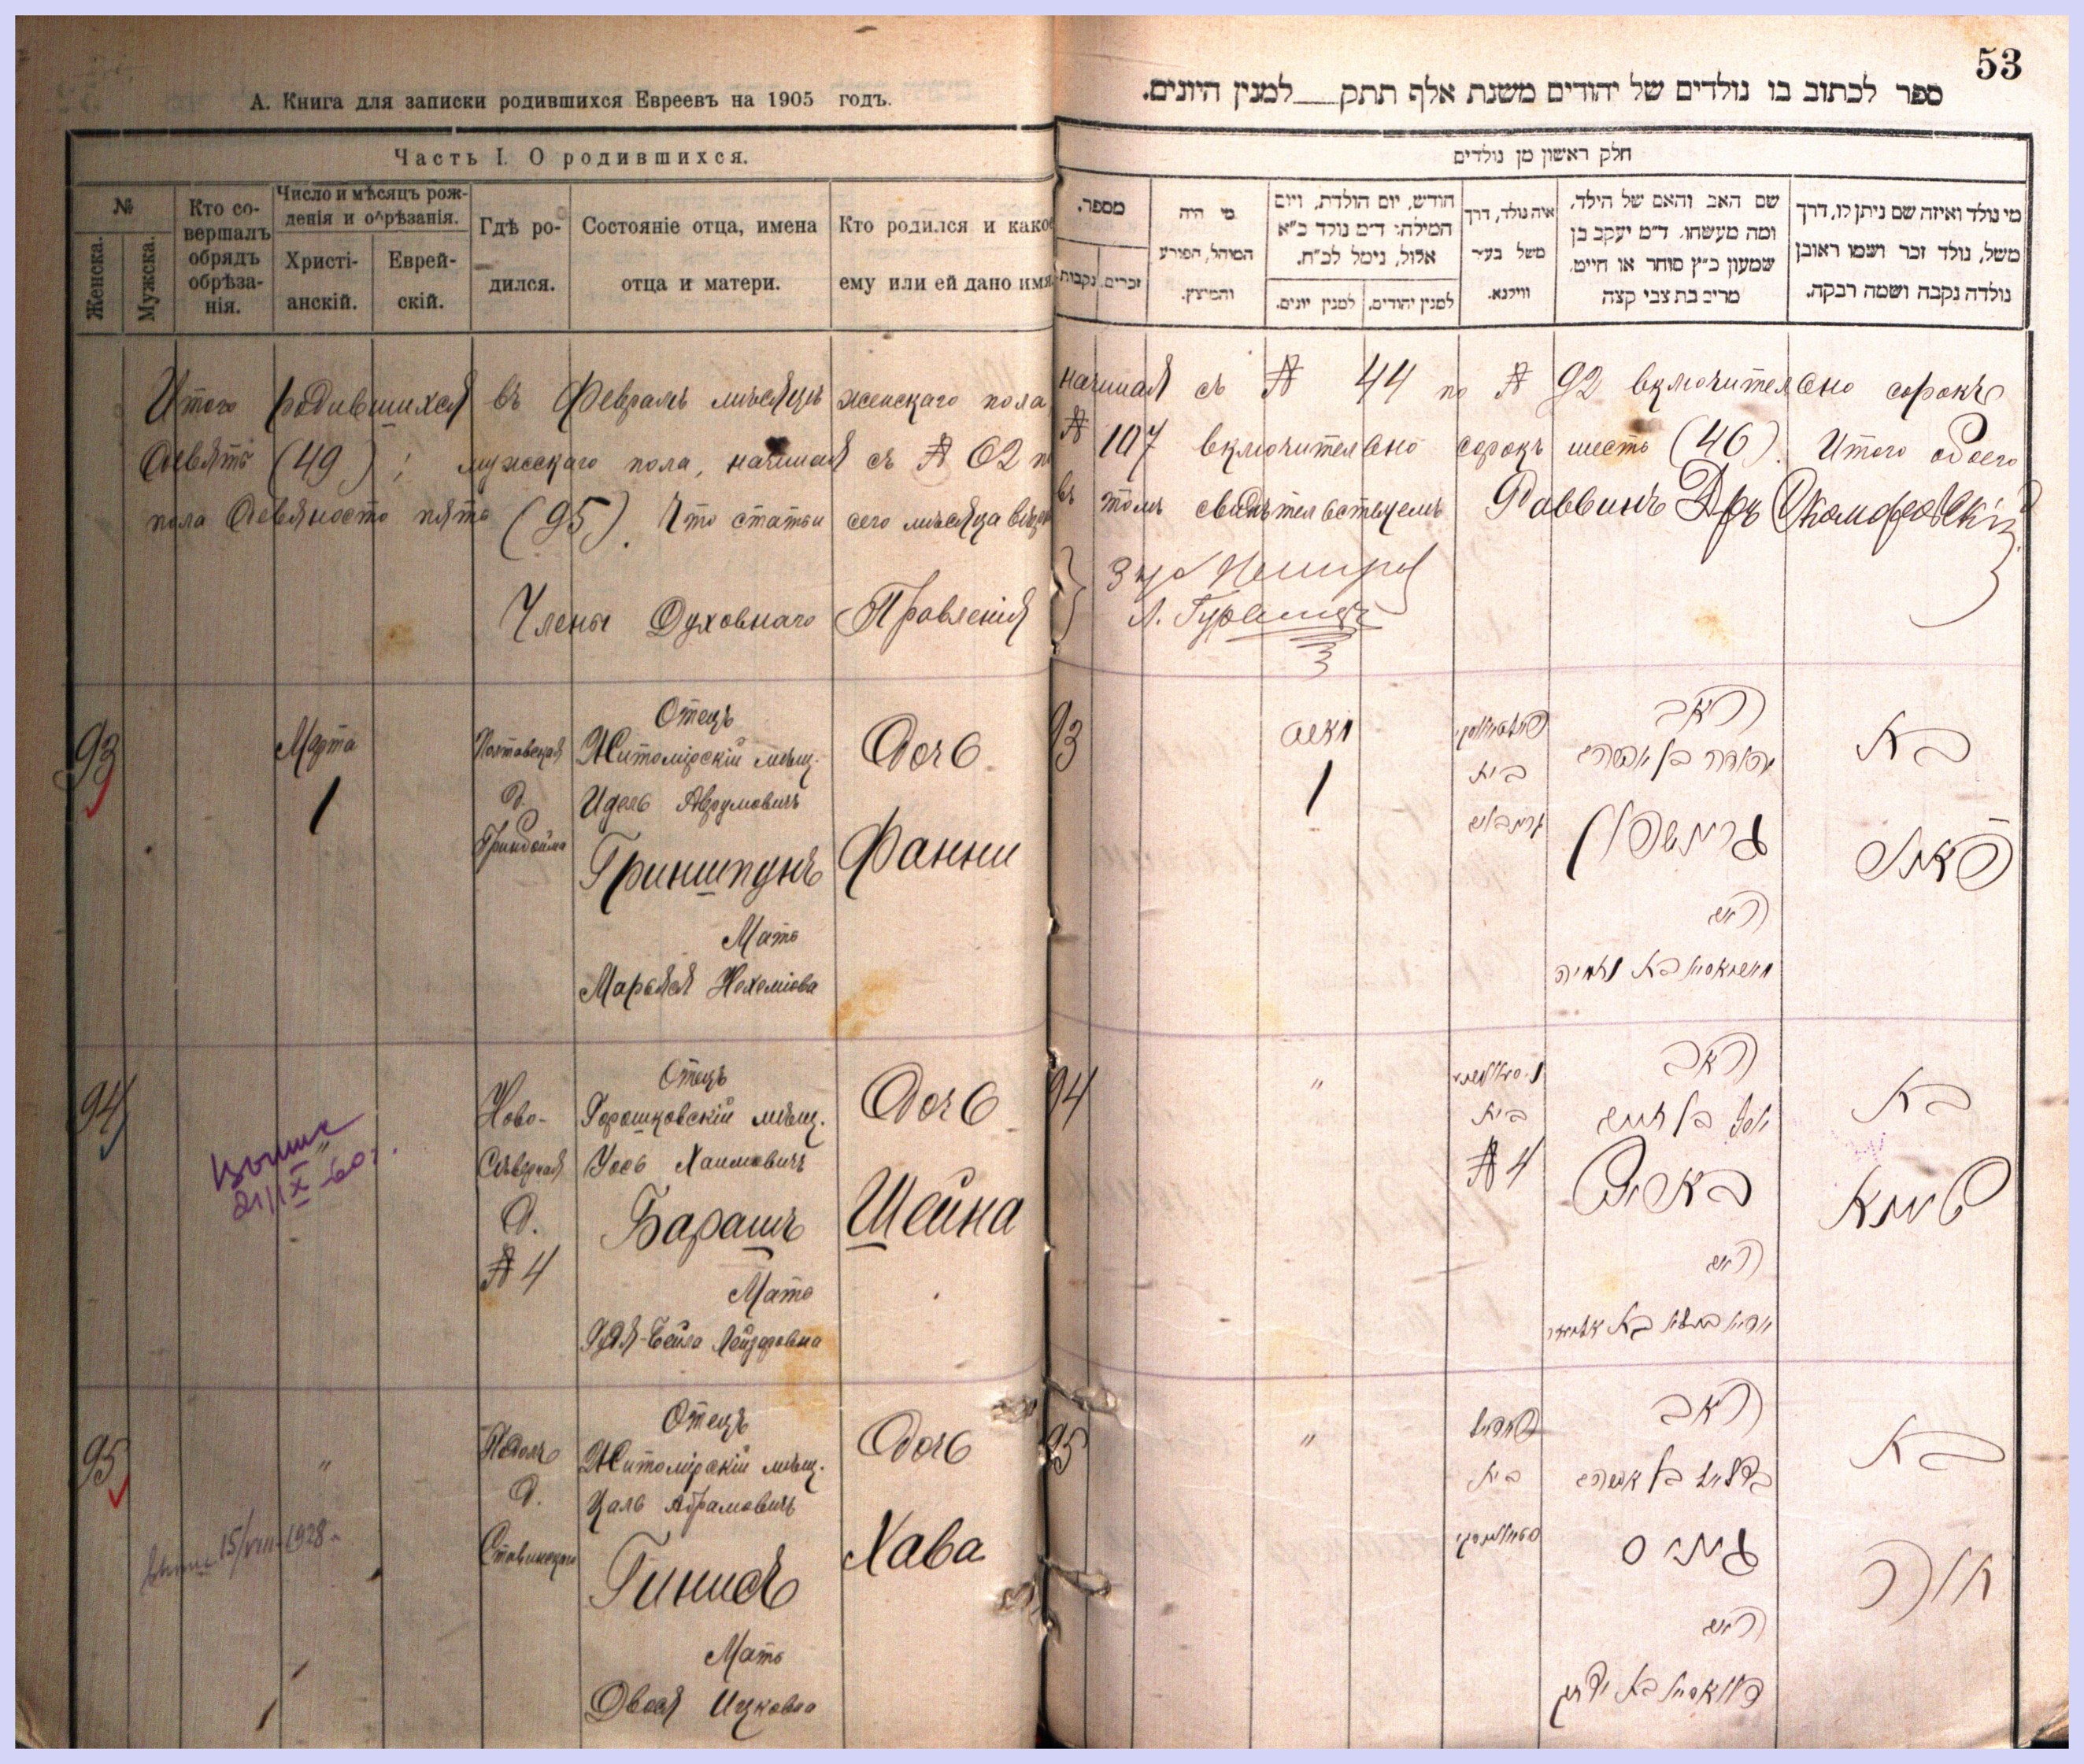 53
А. Книга для записки родившихся Евреевъ на 1905 годъ.
ספר לכתוב בו נולדים של יהודים משנת אלף תתק___למנין היונים.
Часть I. О родившихся.
חלק ראשון מן נולדים
№
Женска.
Мужска.
Кто со-
вершалъ
обрядъ
обрѣза-
нія.
Число и мѣсяцъ рож-
денія и обрѣзанія.
Христі-
анскій.
Еврей-
скій.
Гдѣ ро-
дился.
Состояніе отца, имена
отца и матери.
Кто родился и какое
ему или ей дано имя
מספר.
נקבות
זכרים.
מי היה
המוהל, הפורע
והמוצץ.
חודש, יום הולדת, ויום
המילה: ד״מ נולד כ״א
אלול, נימל לכ״ח.
למנין יונים.
למנין יהודים.
איה נולד, דרך
משל בעיר
ווילנא.
שם האב והאם של הילד,
ומה מעשהו. ד״מ יעקב בן
שמעון כ״ץ סוחר או חייט,
מרים בת צבי קצה
מי נולד ואיזה שם ניתן לו, דרך
משל, נולד זכר ושמו ראובן
נולדה נקבה ושמה רבקה.
Итого родившихся въ Февралѣ мѣсяцѣ женскаго пола, начиная съ № 44 по № 92 включительно сорокъ
девять (49); мужскаго пола, начиная съ № 62 по № 107 включительно сорокъ шесть (46). Итого обоего
пола девяносто пять (95). Что статьи сего мѣсяца въ томъ свидѣтельствуемъ Раввинъ Д-ръ Скоморовскій
Члены Духовнаго Правленія
93
Марта
1
Полтавская
д.
Отецъ
Житомірскій мѣщ.
Идель Аврумовичъ
Гриншпунъ
Мать
Марьяся Нехеміова
Дочь
Фанни
93
מארט
1
בית
האב
גרינשפון
האם
בת
פאני
94
"
Ново-
Сѣверная
д.
№ 4
Отецъ
Горошковскій мѣщ.
Усь Хаимовичъ
Барашъ
Мать
Гдя-Бейла Лейзеровна
Дочь
Шейна
94
"
בית
№ 4
האב
יוסף בן חיים
באראש
האם
בת
שיינא
21/IX-60 г.
95
"
Подолъ
д.
Ставинскаго
Отецъ
Житомірскій мѣщ.
Цаль Абрамовичъ
Гинисъ
Мать
Двося Ицковна
Дочь
Хава
95
"
פאדאל
בית
האב
בצלאל בן אברהם
גיניס
האם
בת
חוה
15/VIII-1928 г.